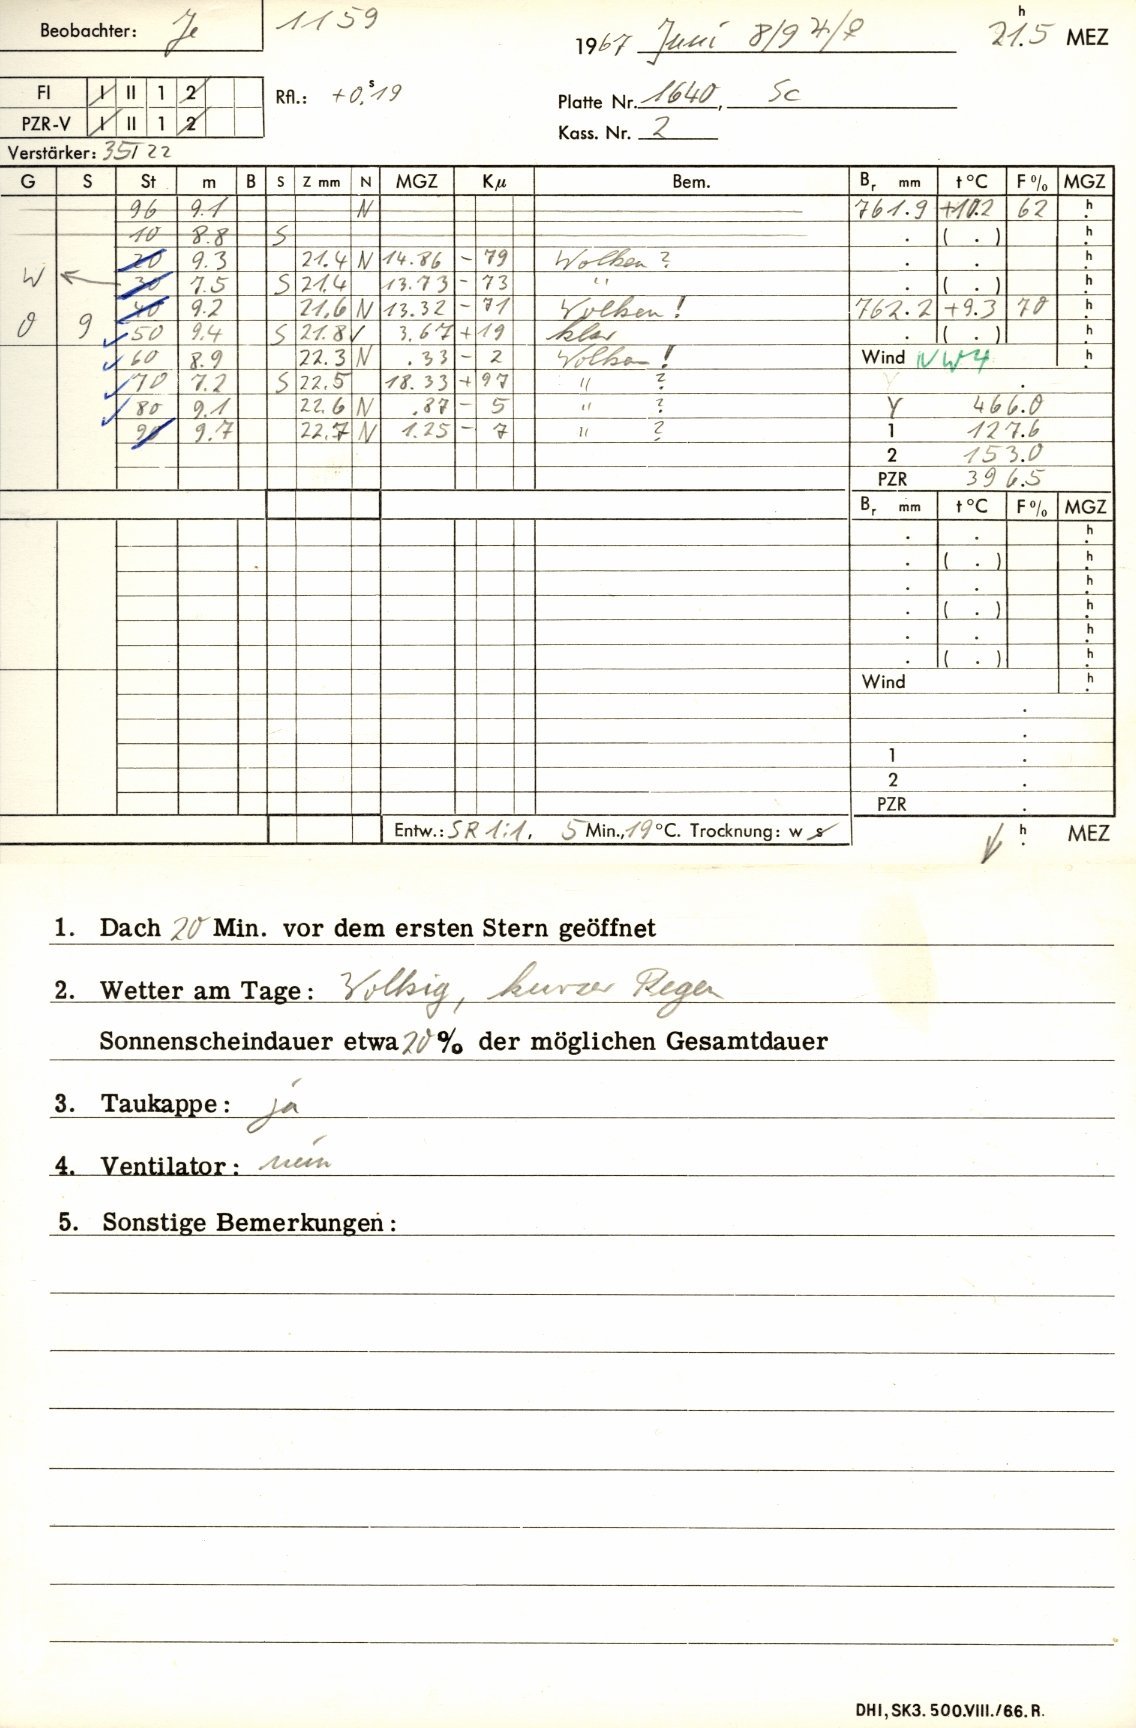 Beobachter: Je 1159
1967 Juni 8/9 ♃/♀ 21.5 h MEZ
FI I II 1 2 Rfl.: +0.s19 Platte Nr. 1640, Sc
PZR-V I II 1 2 Kass. Nr. 2
Verstärker: 35/22
G S St m B S Z mm N MGZ Kμ Bem. Br mm t °C F % MGZ
96 9.1 N 761.9 +10.2 62 h
10 8.8 S . ( . ) h
20 9.3 21.4 N 14.86 - 79 Wolken ? . . h
W 30 7.5 S 21.4 13.73 - 73 " . ( . ) h
40 9.2 21.6 N 13.32 - 71 Wolken ! 762.2 +9.3 70 h
0 9 50 9.4 S 21.8 3.67 + 19 klar . ( . ) h
60 8.9 22.3 N .33 - 2 Wolken ! Wind NW4 h
70 7.2 S 22.5 18.33 + 97 " ? .
80 9.1 22.6 N .87 - 5 " ? Y 466.0
90 9.7 22.7 N 1.25 - 7 " ? 1 127.6
2 153.0
PZR 396.5
Br mm t °C F % MGZ
. . h
. ( . ) h
. . h
. ( . ) h
. . h
. ( . ) h
Wind h
.
.
1 .
2 .
PZR .
Entw.: SR 1:1, 5 Min., 19 °C. Trocknung: w s h MEZ
1. Dach 20 Min. vor dem ersten Stern geöffnet
2. Wetter am Tage: Wolkig, kurzer Regen
Sonnenscheindauer etwa 20 % der möglichen Gesamtdauer
3. Taukappe: ja
4. Ventilator: nein
5. Sonstige Bemerkungen:
DHI, SK3. 500.VIII./66. R.